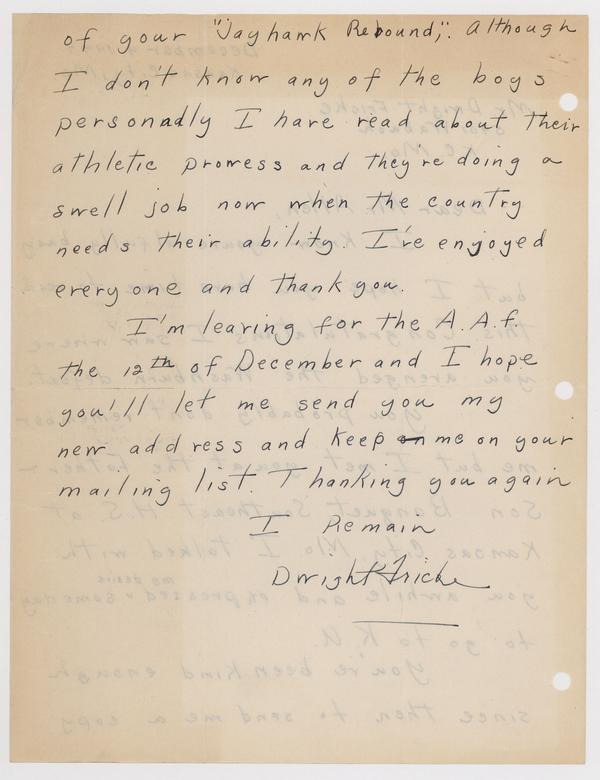 of your "Jayhawk Rebound,". Although
I don't know any of the boys
personally I have read about their
athletic prowess and they're doing a
swell job now when the country
needs their ability. I've enjoyed
every one and thank you.
I'm leaving for the A.A.f.
the 12th of December and I hope
you'll let me send you my
new address and keep me on your
mailing list. Thanking you again
I Remain
Dwight Fricke